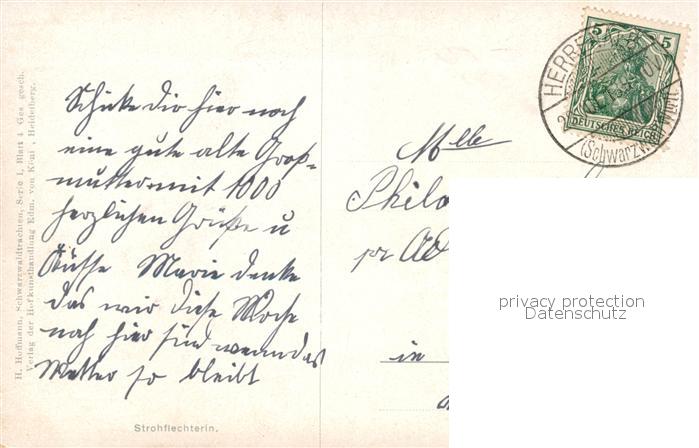 H. Hoffmann, Schwarzwaldtrachten, Serie I, Blatt 4 Ges. gesch.
Verlag der Hofkunsthandlung Edm. von König, Heidelberg.
Schicke dir hier noch
eine gute alte Groß-
mutter mit 1000
herzlichen Grüße u
Küsse Marie denke
das wir diese Woche
noch hier sind wenn das
Wetter so bleibt
Strohflechterin.
5 5
DEUTSCHES REICH
HERRE
(Schwarzwald) Württ.
Mlle
Philo
pr Ad
in
privacy protection
Datenschutz